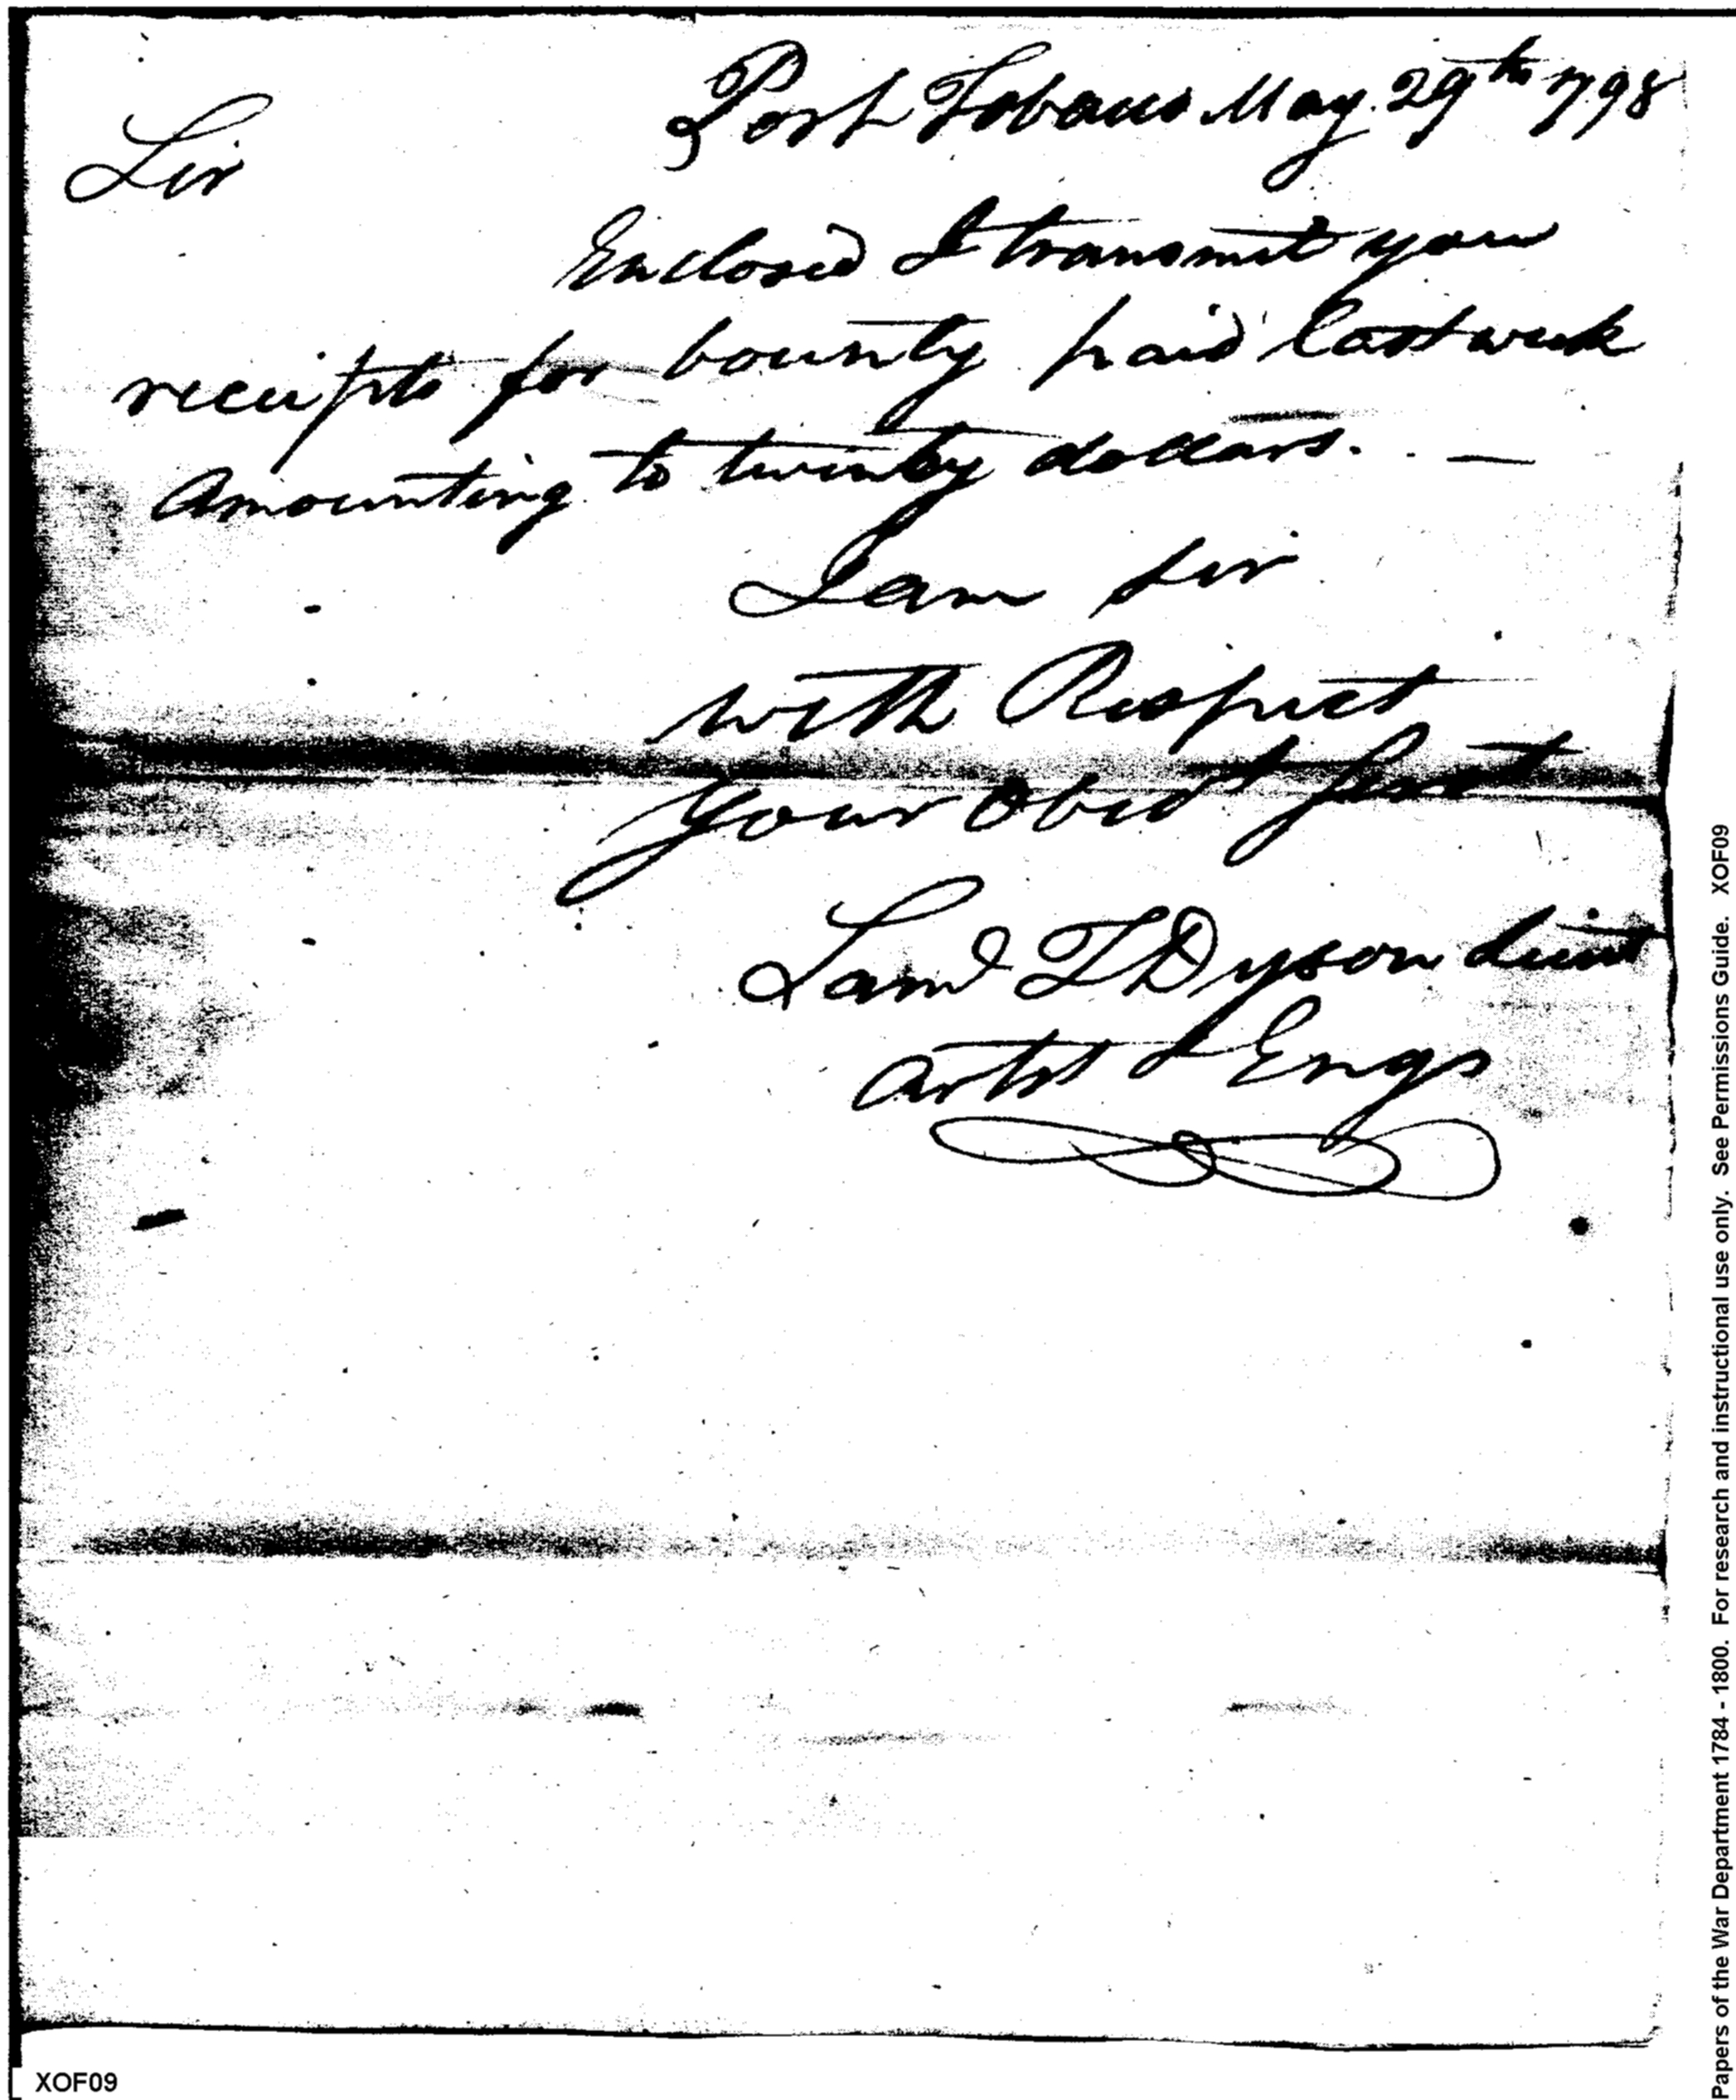 Port Tobacco May 29th 1798
Sir
Enclosed I transmit you
receipts for bounty paid last week
Amounting to twenty dollars. . —
I am sir
with Respect
your obed't servt
Saml T Dyson Lieut
Artst & Engs
XOF09
Papers of the War Department 1784 - 1800. For research and instructional use only. See Permissions Guide. XOF09